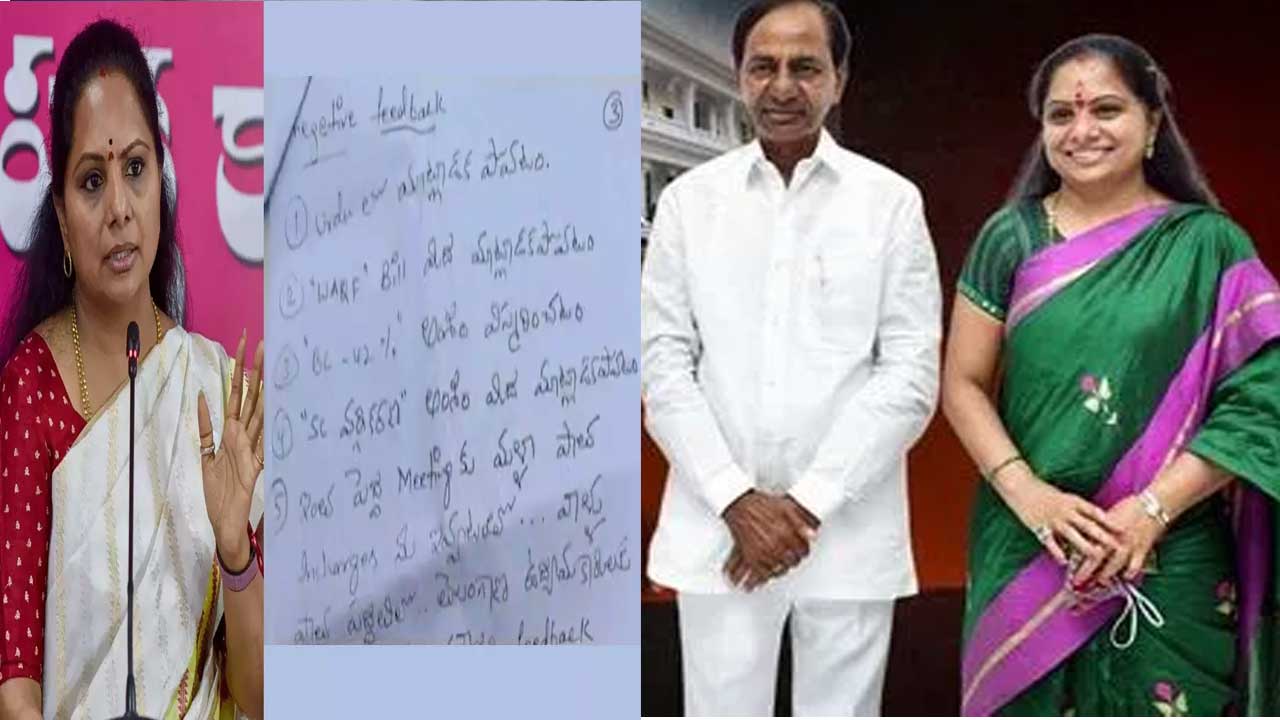 negetive feedback
③
① Urdu లో మాట్లాడక పొవటం.
② "WAQF" Bill మీద మాట్లాడకపొవటం
③ "BC - 42 %" అంశం విస్మరించటం
④ "SC వర్గీకరణ" అంశం మీద మాట్లాడకపొవటం
⑤ ఇంత పెద్ద Meeting కు మళ్ళా పాత
Incharges కు ఇవ్వటంతో ... వాళ్ళు
పాత పద్ధతిలో .. తెలంగాణ ఉద్యమకారులకు
feedback